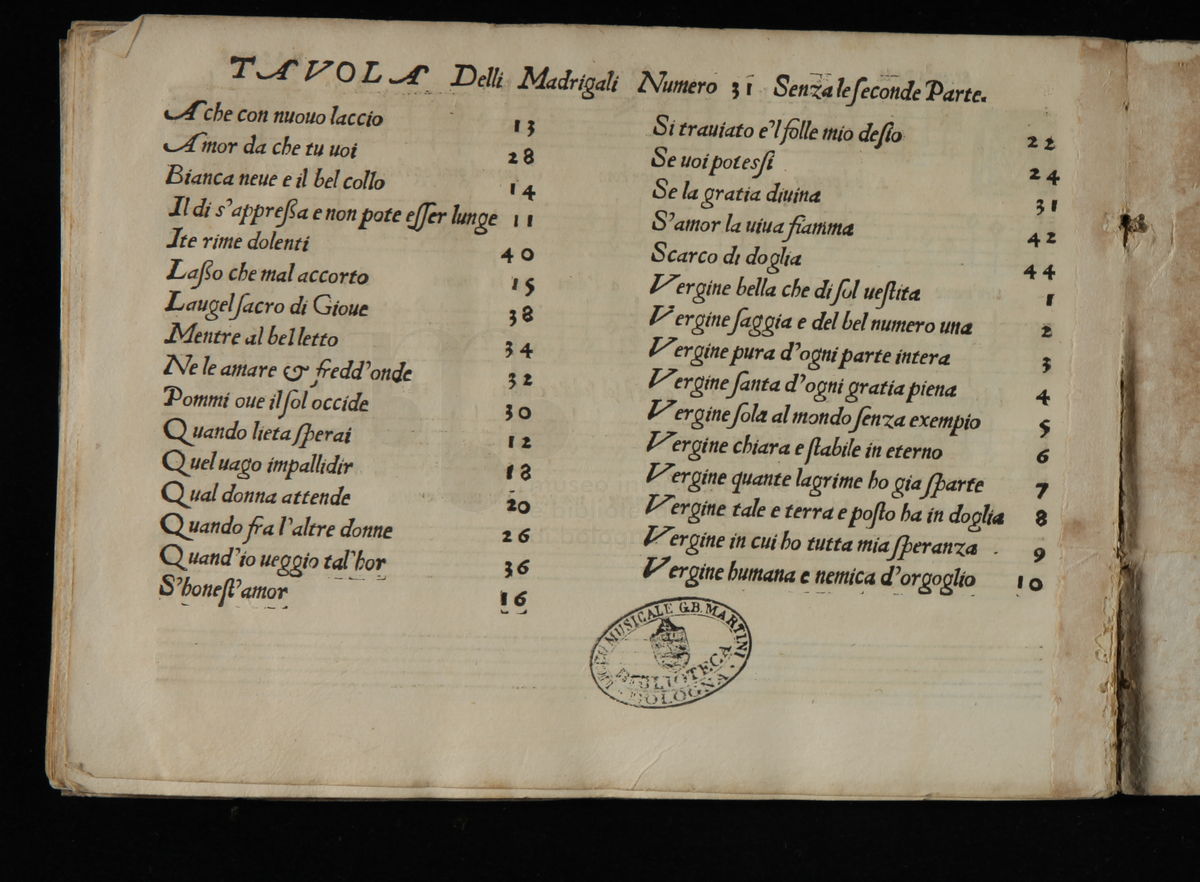 TAVOLA Delli Madrigali Numero 31 Senza le ſeconde Parte.
A che con nuouo laccio 13
Amor da che tu uoi 28
Bianca neue e il bel collo 14
Il di s'appreßa e non pote eſſer lunge 11
Ite rime dolenti 40
Laßo che mal accorto 15
Laugel ſacro di Gioue 38
Mentre al bel letto 34
Ne le amare & fredd'onde 32
Pommi oue il ſol occide 30
Quando lieta ſperai 12
Quel uago impallidir 18
Qual donna attende 20
Quando fra l'altre donne 26
Quand'io ueggio tal'hor 36
S'honeſt'amor 16
Si trauiato e'l folle mio deſio 22
Se uoi poteſſi 24
Se la gratia diuina 31
S'amor la uiua fiamma 42
Scarco di doglia 44
Vergine bella che di ſol ueſtita 1
Vergine ſaggia e del bel numero una 2
Vergine pura d'ogni parte intera 3
Vergine ſanta d'ogni gratia piena 4
Vergine ſola al mondo ſenza exempio 5
Vergine chiara e ſtabile in eterno 6
Vergine quante lagrime ho gia ſparte 7
Vergine tale e terra e poſto ha in doglia 8
Vergine in cui ho tutta mia ſperanza . 9
Vergine humana e nemica d'orgoglio 10
LICEO MUSICALE G.B. MARTINI
BIBLIOTECA
· BOLOGNA ·